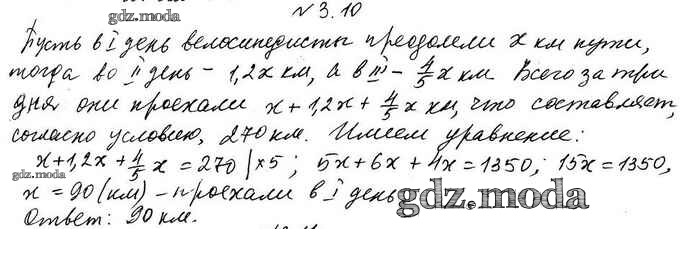 № 3.10
gdz.moda
Пусть в I день велосипедисты преодолели x км пути,
тогда во II день – 1,2x км, а в III – 4/5 x км. Всего за три
дня они проехали x + 1,2x + 4/5 x км, что составляет,
согласно условию, 270 км. Имеем уравнение:
x + 1,2x + 4/5 x = 270 | × 5 ; 5x + 6x + 4x = 1350; 15x = 1350,
gdz.moda
x = 90 (км) – проехали в I день
gdz.moda
Ответ: 90 км.